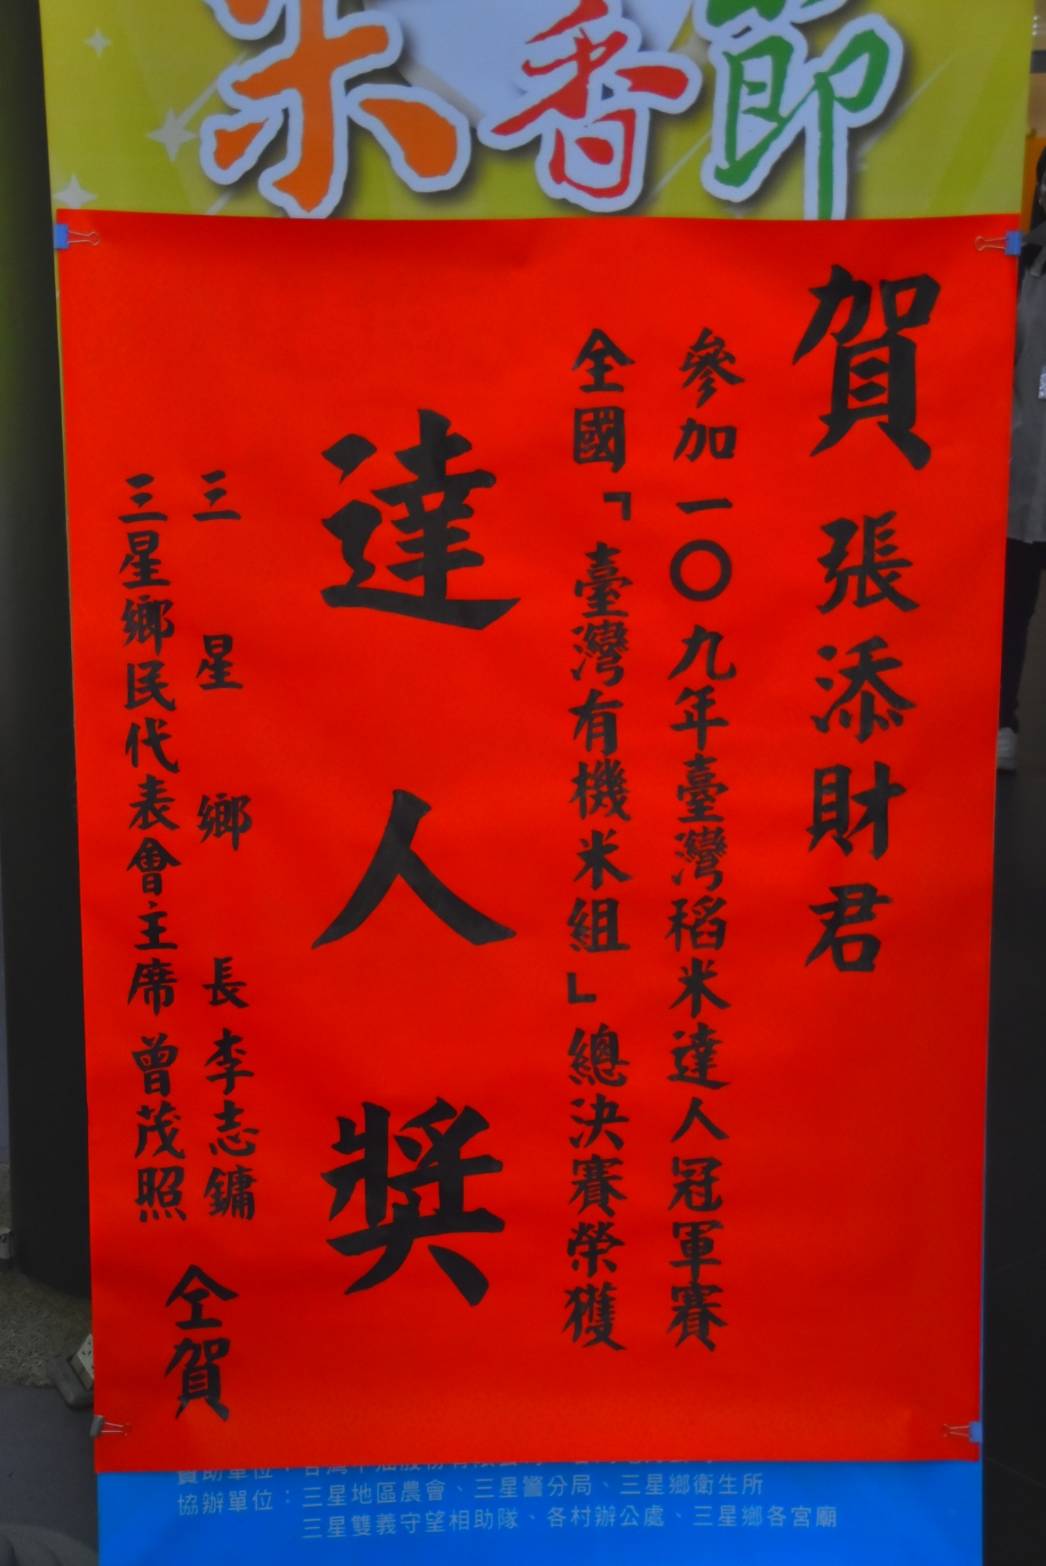 米香節
賀 張添財君
參加一〇九年臺灣稻米達人冠軍賽
全國「臺灣有機米組」總決賽榮獲
達人獎
三星鄉長李志鏞
三星鄉民代表會主席曾茂照
仝賀
協辦單位：三星地區農會、三星警分局、三星鄉衛生所
三星雙義守望相助隊、各村辦公處、三星鄉各宮廟